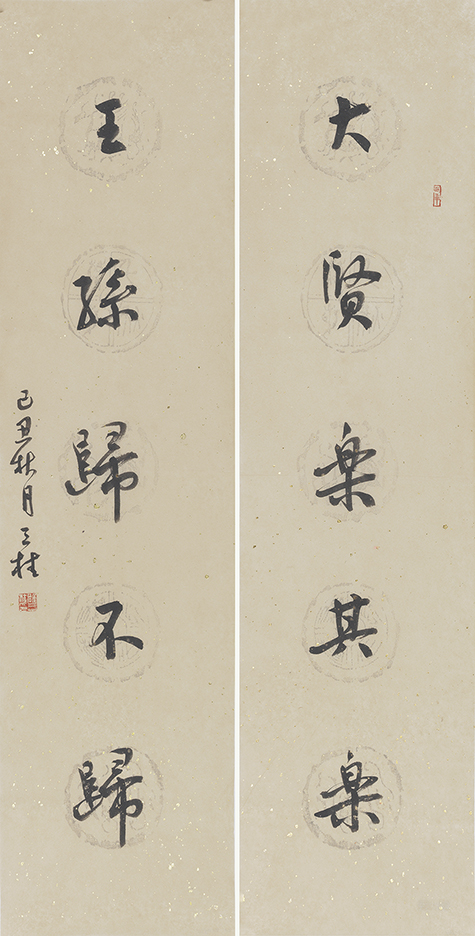 大賢樂其樂
王孫歸不歸
己丑秋月 三桂